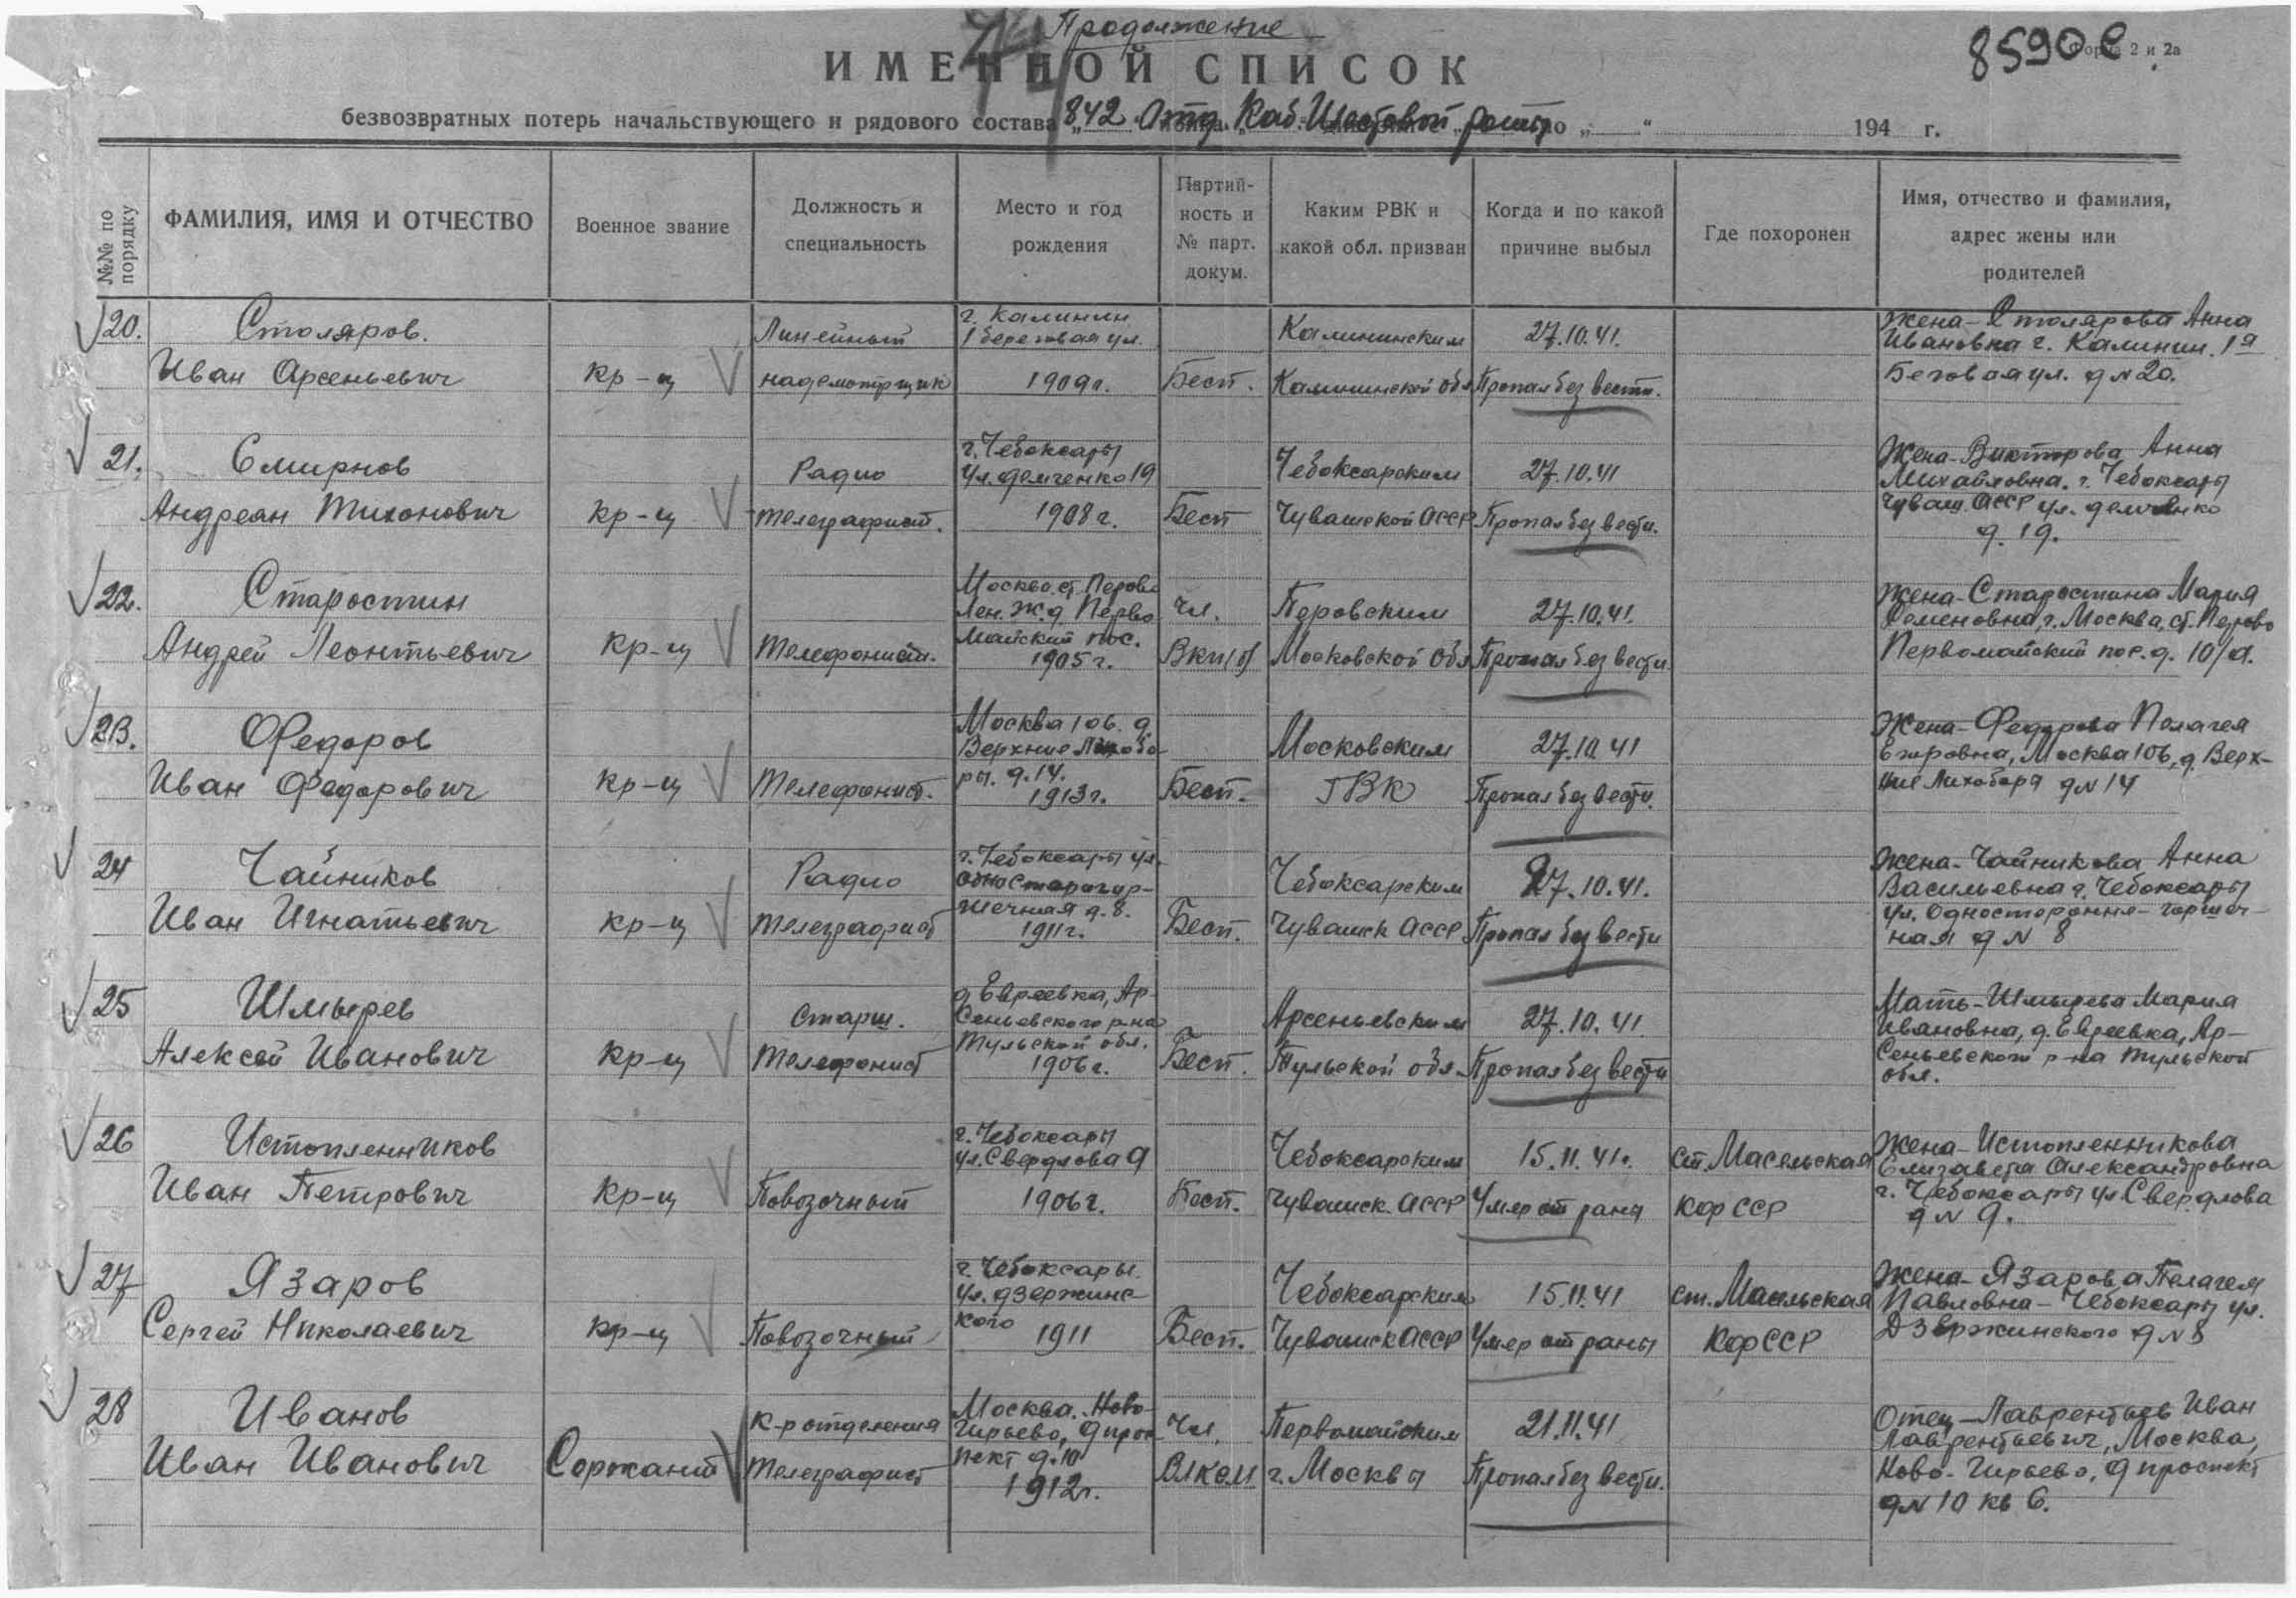 Продолжение
74
8590с
Форма 2 и 2а
ИМЕННОЙ СПИСОК
безвозвратных потерь начальствующего и рядового состава „842 Отд. Каб. Шестовой роты по „ “ 194 г.
№№ по порядку
ФАМИЛИЯ, ИМЯ И ОТЧЕСТВО
Военное звание
Должность и специальность
Место и год рождения
Партий-ность и № парт. докум.
Каким РВК и какой обл. призван
Когда и по какой причине выбыл
Где похоронен
Имя, отчество и фамилия, адрес жены или родителей
20.
Столяров.
Иван Арсеньевич
кр-ц
Линейный
надсмотрщик
г. Калинин
1 береговая ул.
1909г.
Бесп.
Калининским
Калининской обл
27.10.41.
Пропал без вести.
Жена-Столярова Анна
Ивановна г. Калинин. 1а
Беговая ул. д№20.
21.
Смирнов
Андреан Тихонович
кр-ц
Радио
телеграфист.
г. Чебоксары
ул. Демченко 19
1908г.
Бесп
Чебоксарским
Чувашской АССР
27.10.41
Пропал без вести.
Жена-Викторова Анна
Михайловна. г. Чебоксары
Чуваш. АССР ул. Демченко
д. 19.
22.
Старостин
Андрей Леонтьевич
кр-ц
Телефонист.
Москва ст. Перово
Лен. ж.д Перво
майский пос.
1905г.
чл.
ВКП(б)
Перовским
Московской обл
27.10.41.
Пропал без вести
Жена-Старостина Мария
Семеновна, г. Москва, ст. Перово
Первомайский пос. д. 10/а.
23.
Федоров
Иван Федорович
кр-ц
Телефонист.
Москва 106. д.
Верхние Лихобо-
ры. д. 14.
1913г.
Бесп.
Московским
ГВК
27.10.41
Пропал без вести.
Жена-Федорова Пелагея
Егоровна, Москва 106, д. Верх-
ние Лихобора д№14
24
Чайников
Иван Игнатьевич
кр-ц
Радио
телеграфист
г. Чебоксары ул.
шечная д. 8.
1911г.
Бесп.
Чебоксарским
Чувашск АССР
27.10.41.
Пропал без вести
Жена-Чайникова Анна
Васильевна г. Чебоксары
ул. Односторонне-горшеч-
ная д№8
25
Шмырев
Алексей Иванович
кр-ц
Старш.
Телефонист
д. Евреевка, Ар-
сеньевского р-на
Тульской обл.
1906г.
Бесп.
Арсеньевским
Тульской обл.
27.10.41
Пропал без вести
Мать-Шмырева Мария
Ивановна, д. Евреевка, Ар-
сеньевского р-на Тульской
обл.
26
Истопленников
Иван Петрович
кр-ц
Повозочный
г. Чебоксары
ул. Свердлова 9
1906г.
Бесп.
Чебоксарским
Чувашск. АССР
15.11.41г.
Умер от раны
ст. Масельская
КФССР
Жена-Истопленникова
Елизавета Александровна
г. Чебоксары ул. Свердлова
д№9.
27
Язаров
Сергей Николаевич
кр-ц
Повозочный
г. Чебоксары.
ул. Дзержинс
кого
1911
Бесп.
Чебоксарским
Чувашск АССР
15.11.41
Умер от раны
ст. Масельская
КФССР
Жена-Язарова Пелагея
Павловна-Чебоксары ул.
Дзержинского д№8
28
Иванов
Иван Иванович
Сержант
К-р отделения
телеграфист
Москва. Ново-
Гирьево, 9 прос
пект д. 10
1912г.
Чл.
ВЛКСМ
Первомайским
г. Москвы
21.11.41
Пропал без вести.
Отец-Лаврентьев Иван
Лаврентьевич, Москва,
Ново-Гирьево, 9 проспект
д№10 кв 6.